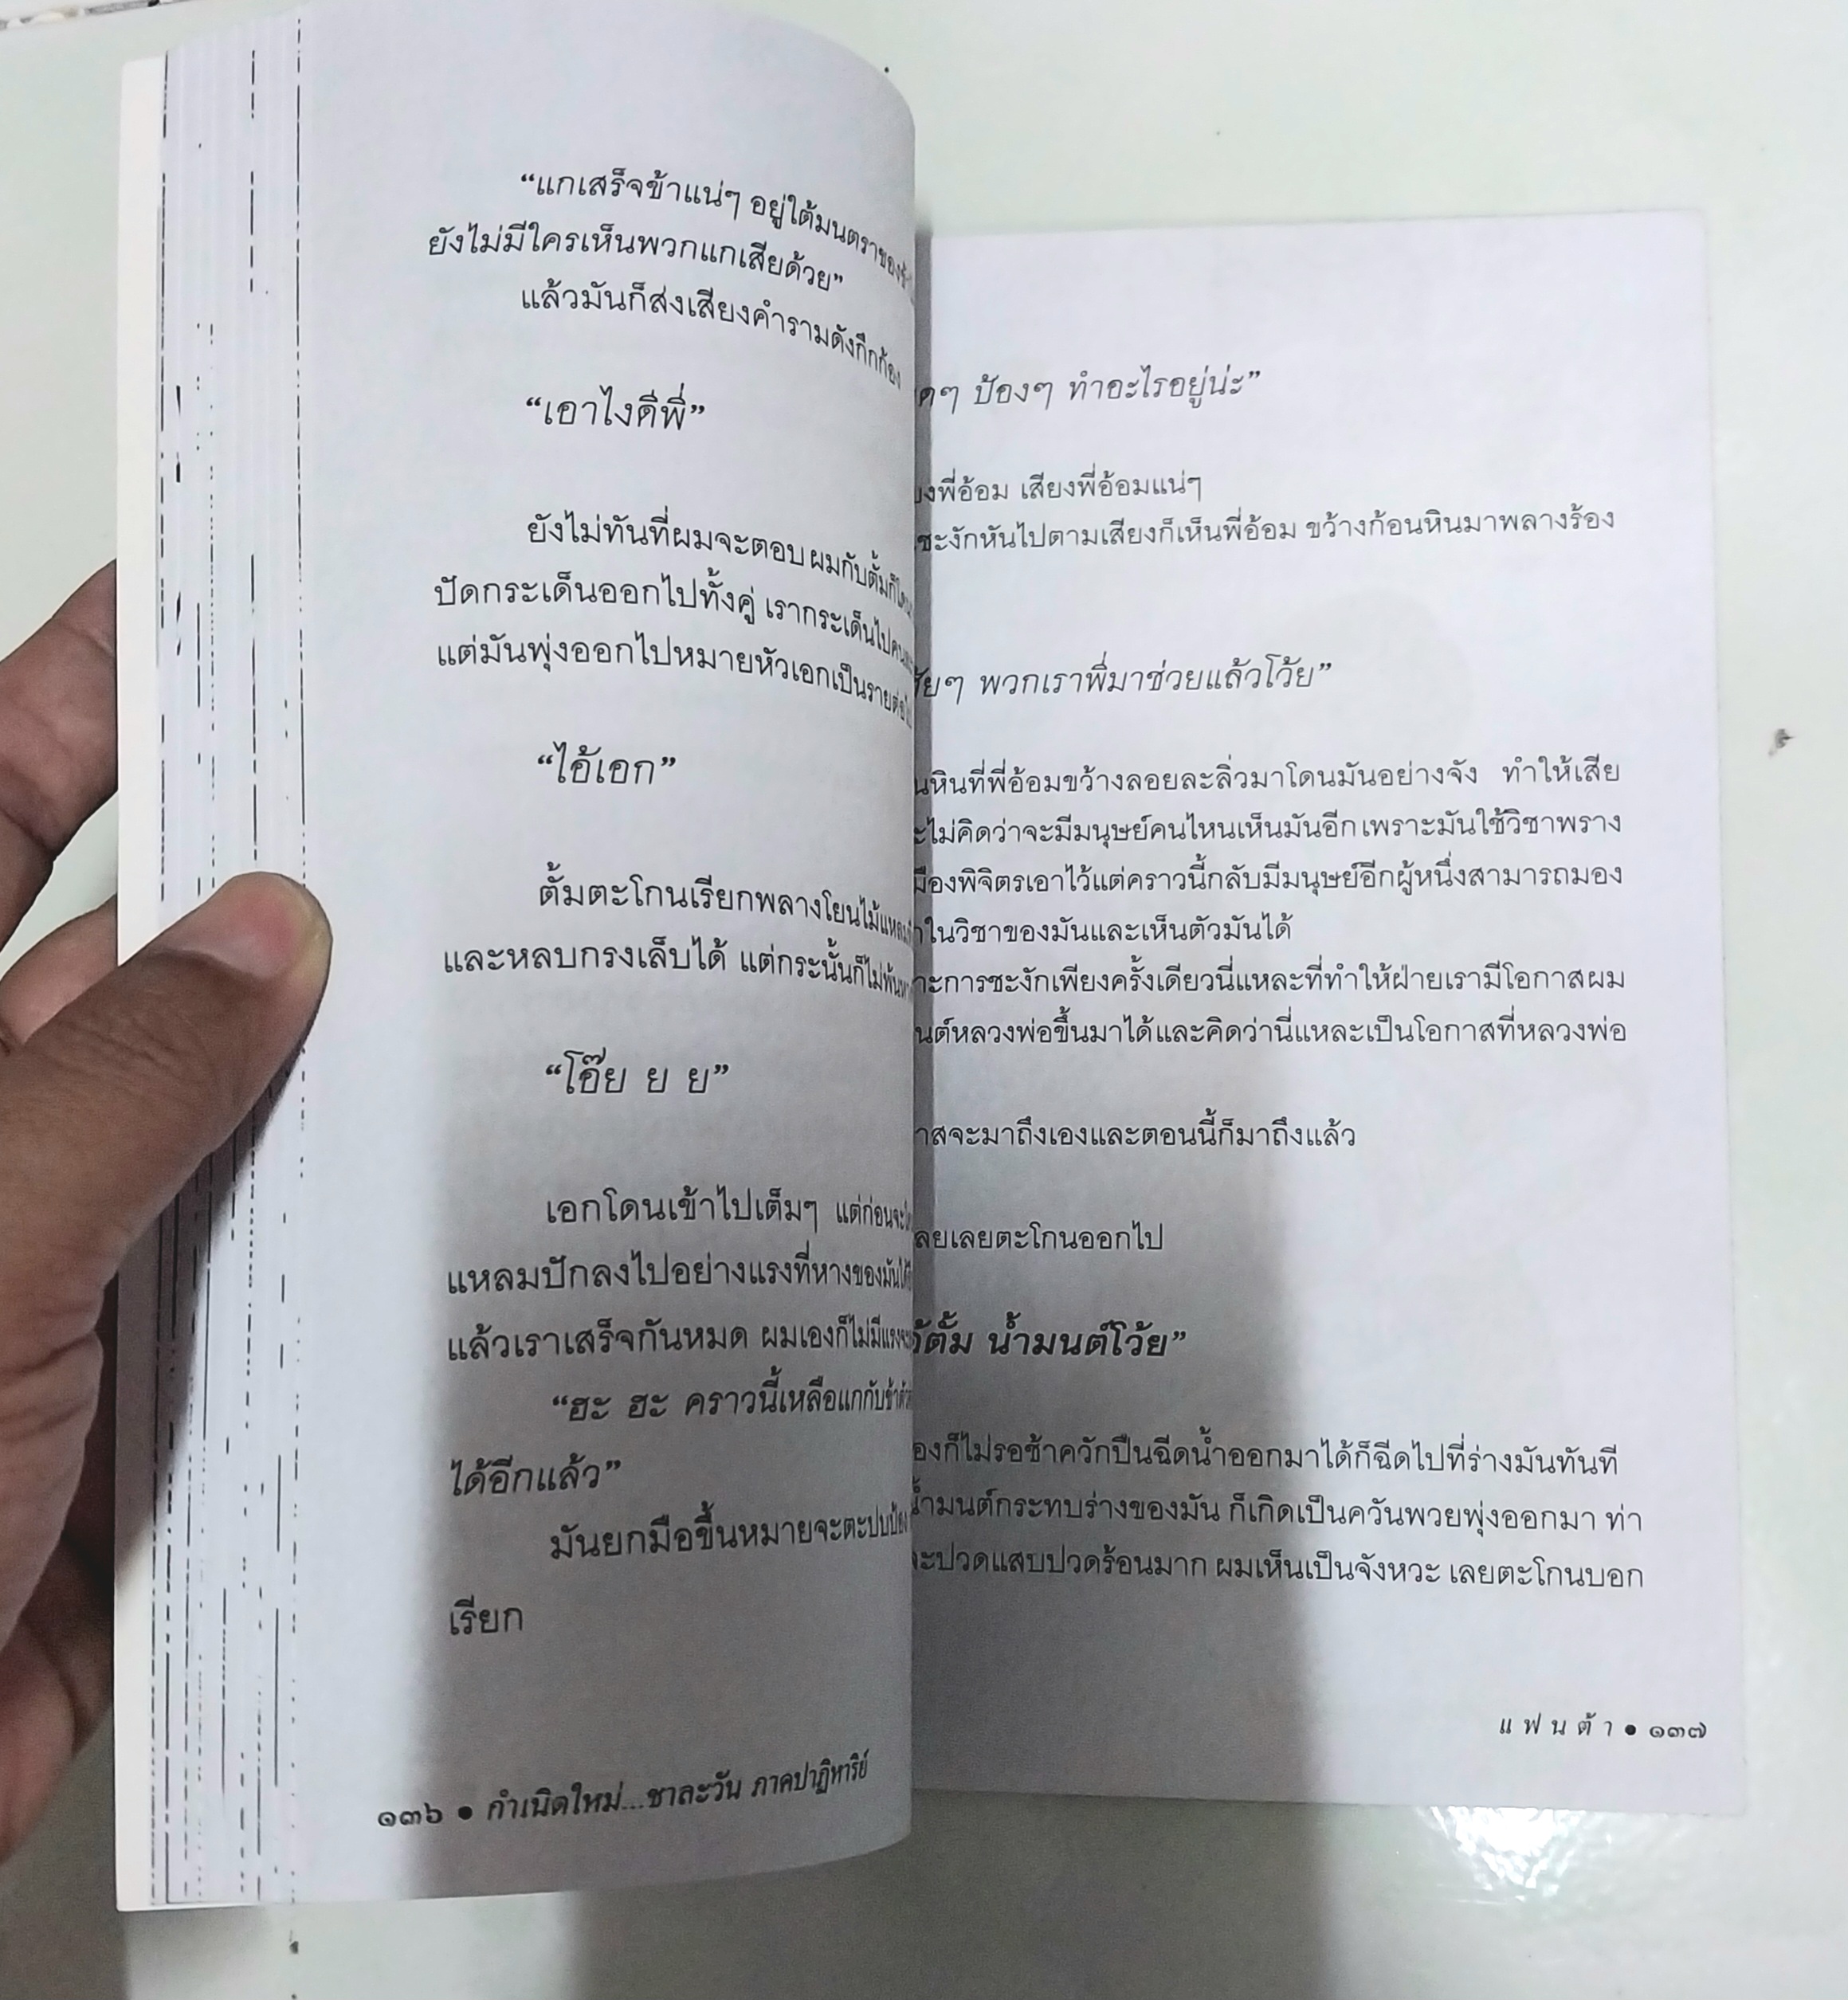 “แกเสร็จข้าแน่ๆ อยู่ใต้มนตราของ
ยังไม่มีใครเห็นพวกแกเสียด้วย”
แล้วมันก็ส่งเสียงคำรามดังกึกก้อง
“เอาไงดีพี่”
ยังไม่ทันที่ผมจะตอบ ผมกับตั้มก็
ปัดกระเด็นออกไปทั้งคู่ เรากระเด็นไป
แต่มันพุ่งออกไปหมายหัวเอกเป็นราย
“ไอ้เอก”
ตั้มตะโกนเรียกพลางโยนไม้
และหลบกรงเล็บได้ แต่กระนั้นก็ไม่พ้น
“โอ๊ย ย ย”
เอกโดนเข้าไปเต็มๆ แต่ก่อนจะ
แหลมปักลงไปอย่างแรงที่หางของมัน
แล้วเราเสร็จกันหมด ผมเองก็ไม่มีแรง
“ฮะ ฮะ คราวนี้เหลือแกกับข้า
ได้อีกแล้ว”
มันยกมือขึ้นหมายจะตะปบ
เรียก
๑๓๖ ● กำเนิดใหม่...ชาละวัน ภาคปาฏิหาริย์
ๆ ป้องๆ ทำอะไรอยู่น่ะ”
พี่อ้อม เสียงพี่อ้อมแน่ๆ
ชะงักหันไปตามเสียงก็เห็นพี่อ้อม ขว้างก้อนหินมาพลางร้อง
พวกเราพี่มาช่วยแล้วโว้ย”
หินที่พี่อ้อมขว้างลอยละลิ่วมาโดนมันอย่างจัง ทำให้เสีย
ไม่คิดว่าจะมีมนุษย์คนไหนเห็นมันอีก เพราะมันใช้วิชาพราง
เมืองพิจิตรเอาไว้แต่คราวนี้กลับมีมนุษย์อีกผู้หนึ่งสามารถมอง
ในวิชาของมันและเห็นตัวมันได้
การชะงักเพียงครั้งเดียวนี่แหละที่ทำให้ฝ่ายเรามีโอกาสผม
หลวงพ่อขึ้นมาได้และคิดว่านี่แหละเป็นโอกาสที่หลวงพ่อ
จะมาถึงเองและตอนนี้ก็มาถึงแล้ว
เลยตะโกนออกไป
ตั้ม น้ำมนต์โว้ย”
ก็ไม่รอช้าควักปืนฉีดน้ำออกมาได้ก็ฉีดไปที่ร่างมันทันที
น้ำมนต์กระทบร่างของมัน ก็เกิดเป็นควันพวยพุ่งออกมา ท่า
จะปวดแสบปวดร้อนมาก ผมเห็นเป็นจังหวะ เลยตะโกนบอก
แฟนต้า ● ๑๓๗